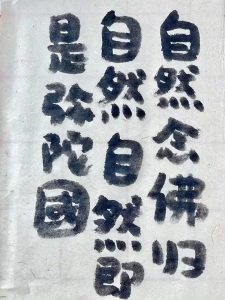 自然念佛归
自然自然即
是弥陀國